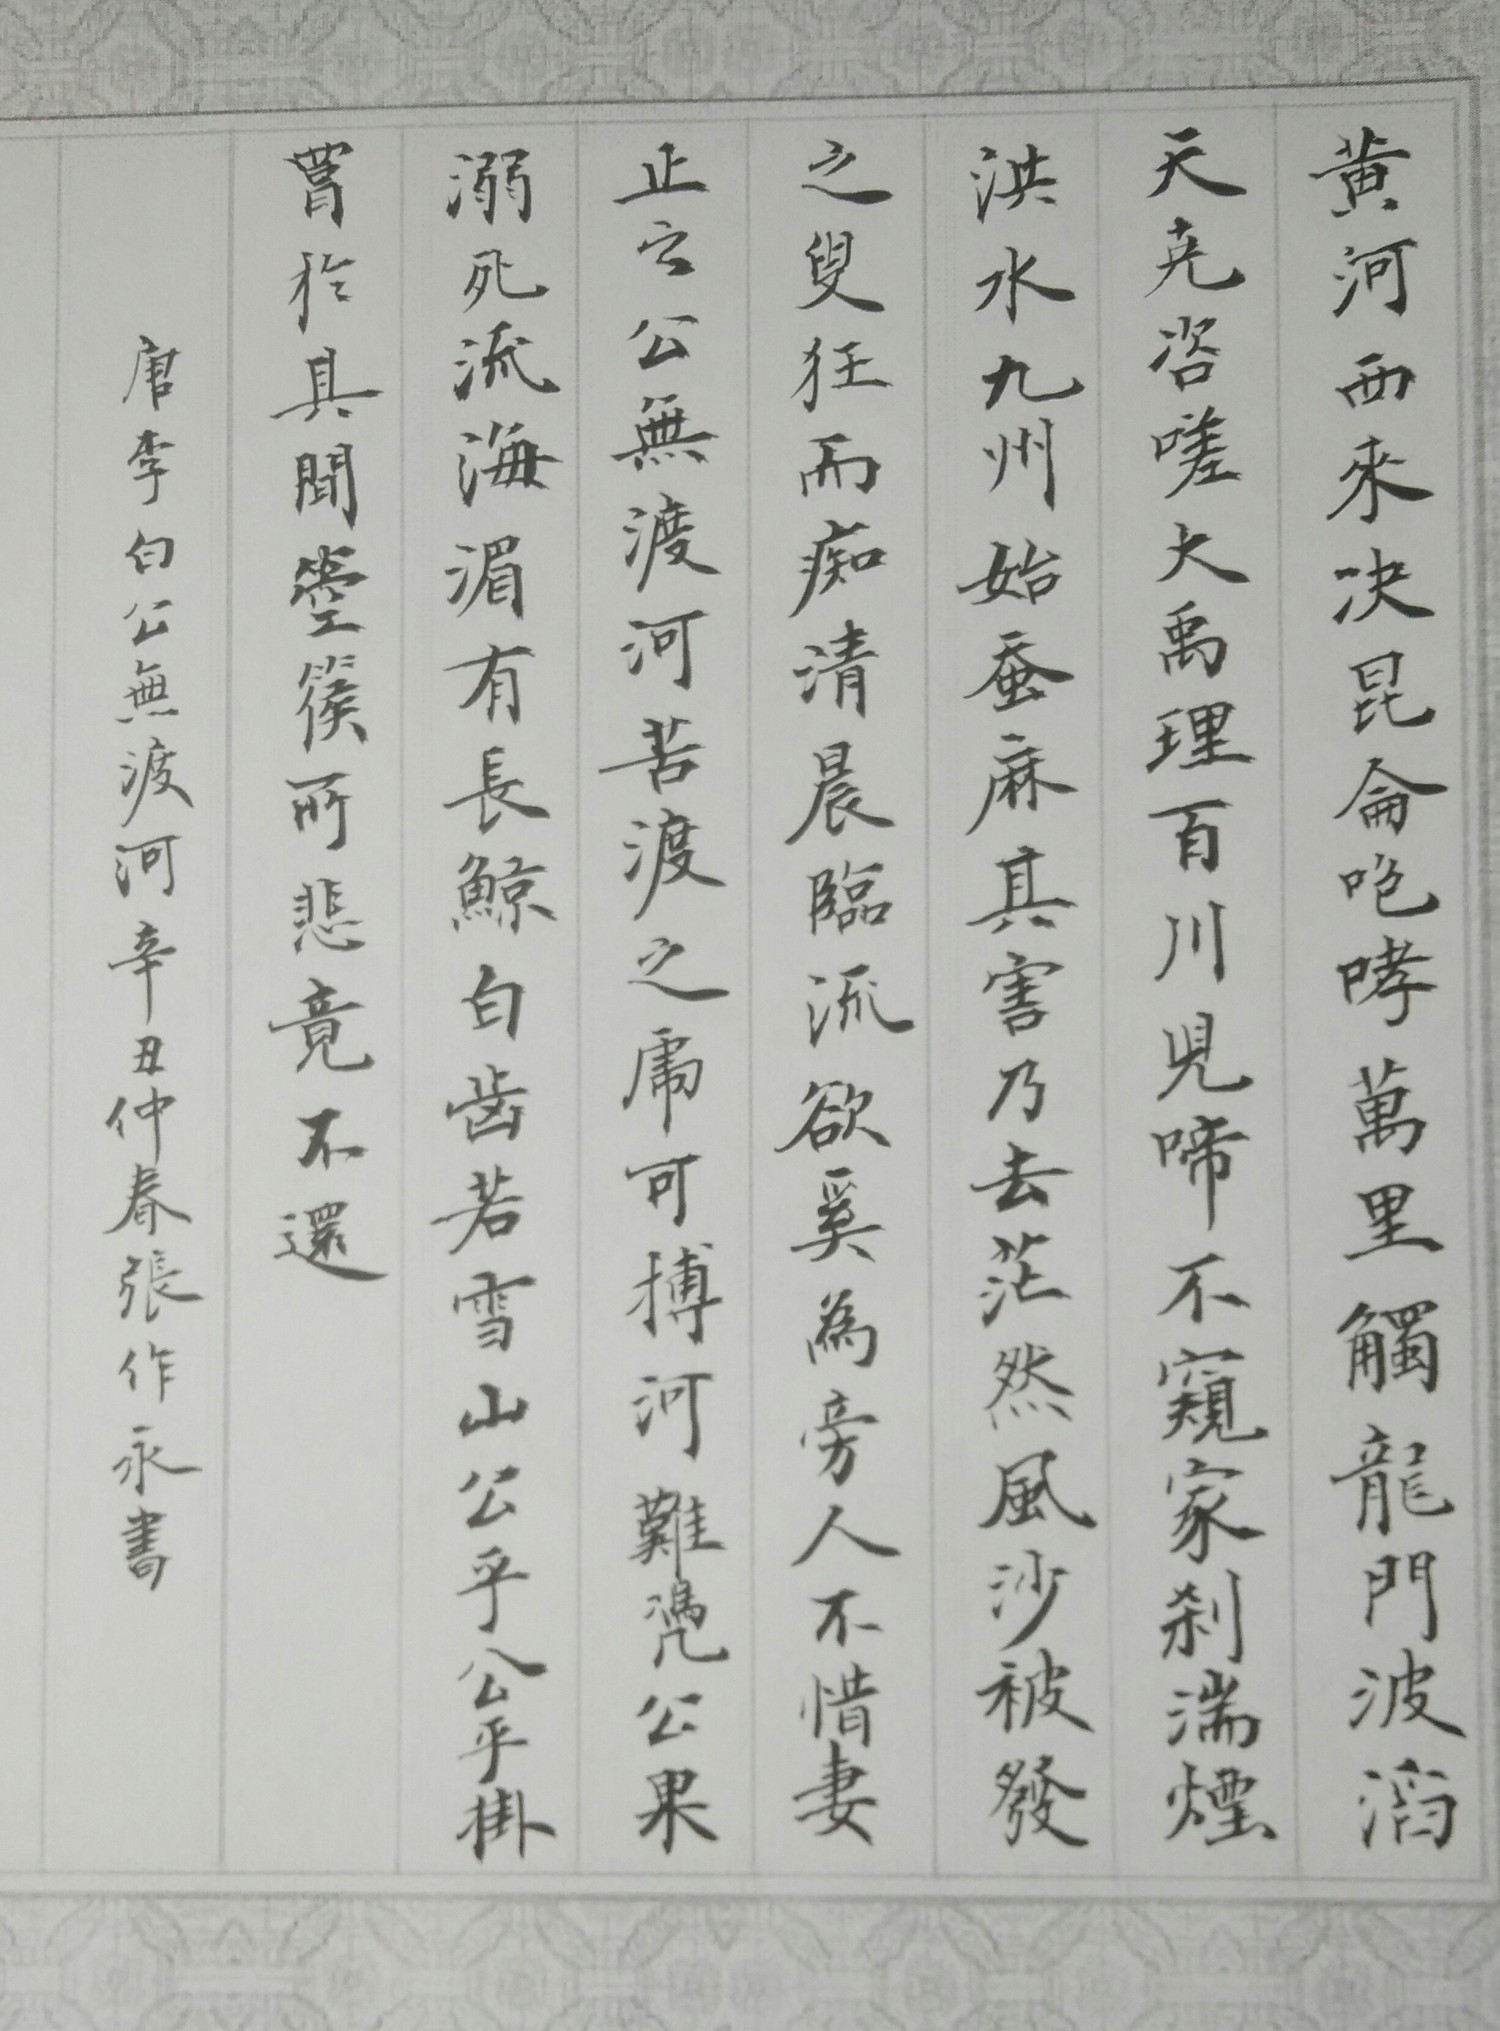 黄河西來决昆侖咆哮萬里觸龍門波滔
天尭咨嗟大禹理百川児啼不窺家刹湍煙
洪水九州始蚕麻其害乃去茫然風沙被發
之叟狂而痴清晨臨流欲奚為旁人不惜妻
止之公無渡河苦渡之虎可搏河難凴公果
溺死流海湄有長鯨白齒若雪山公乎公乎掛
罥於其間箜篌所悲竟不還
唐李白公無渡河辛丑仲春張作永書